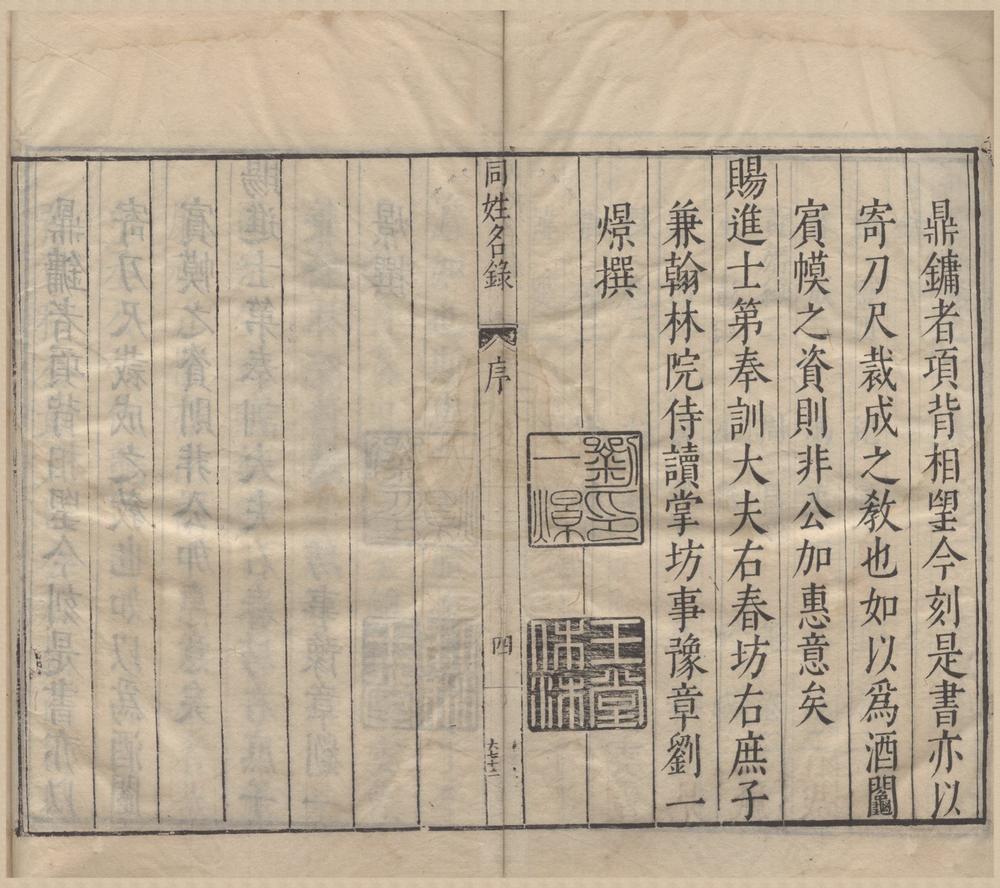 鼎鏞者項背相望今刻是書亦以
寄刀尺裁成之敎也如以爲酒闌
賔幙之資則非公加惠意矣
賜進士第奉訓大夫右春坊右庶子
兼翰林院侍讀掌坊事豫章劉一
燝撰
劉一燝印
玉堂
同姓名錄
序
四
六七十二